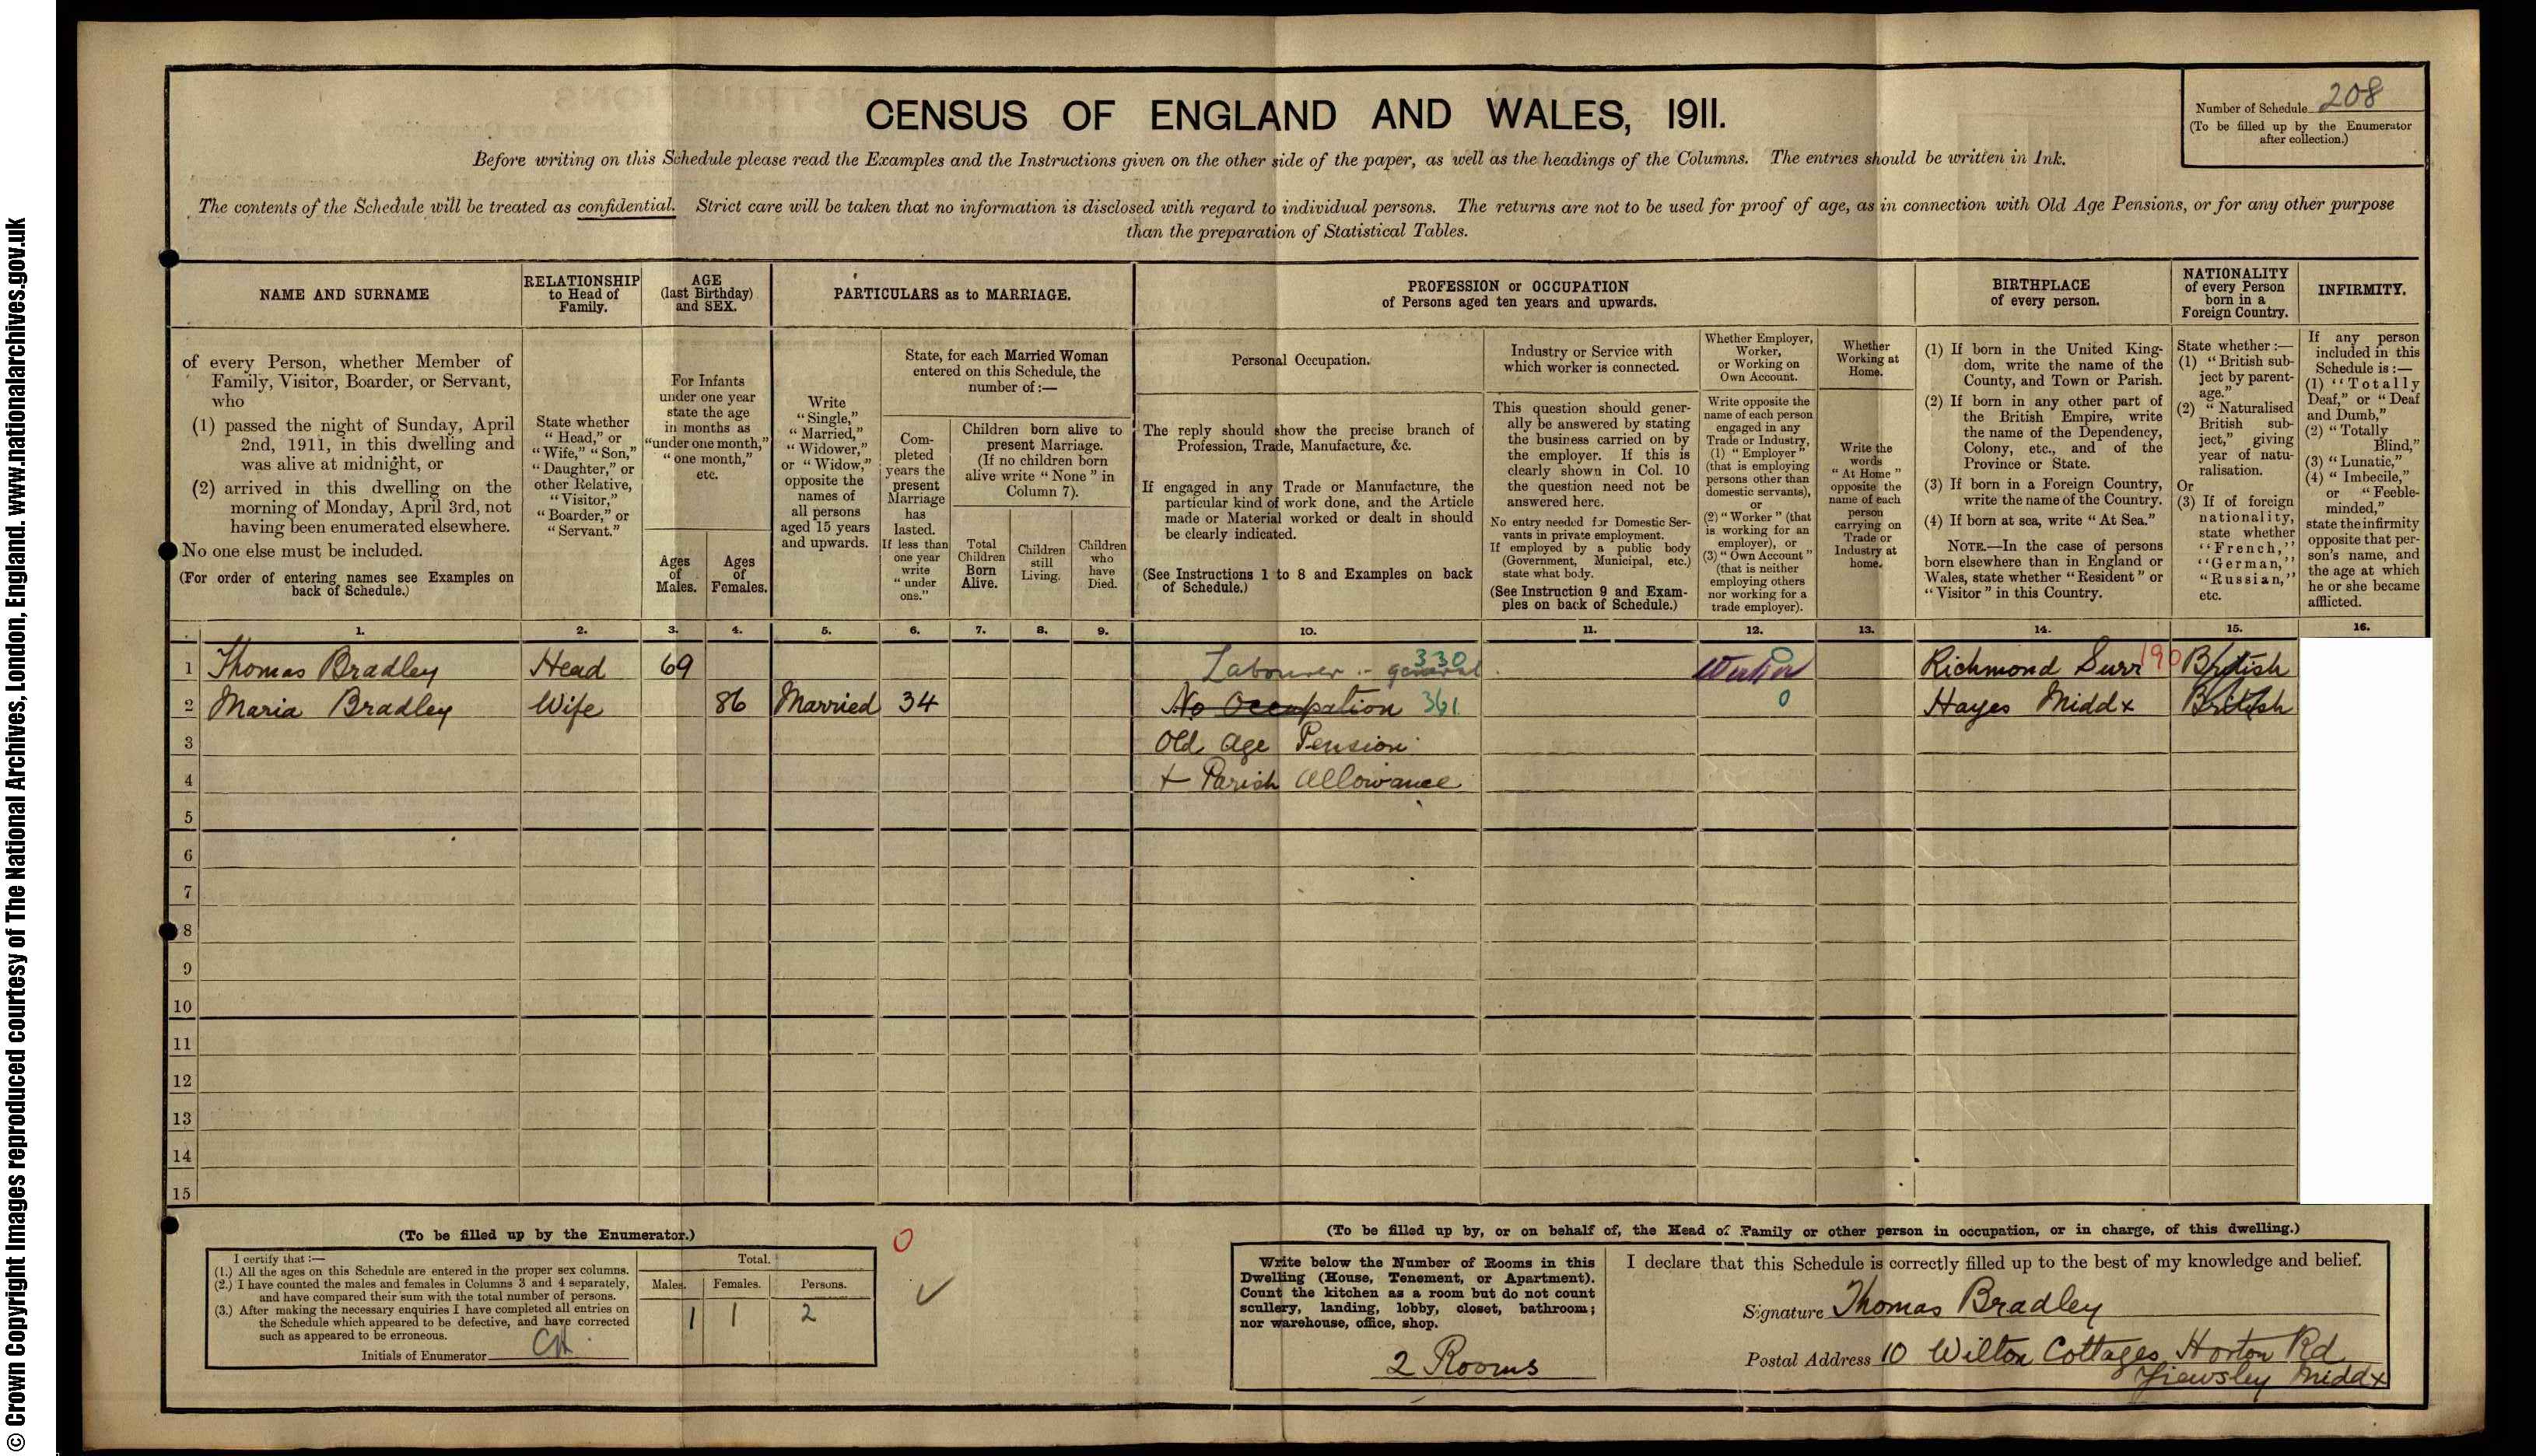 © Crown Copyright Images reproduced courtesy of The National Archives, London, England. www.nationalarchives.gov.uk
CENSUS OF ENGLAND AND WALES, 1911.
Number of Schedule 208
(To be filled up by the Enumerator
after collection.)
Before writing on this Schedule please read the Examples and the Instructions given on the other side of the paper, as well as the headings of the Columns. The entries should be written in Ink.
The contents of the Schedule will be treated as confidential. Strict care will be taken that no information is disclosed with regard to individual persons. The returns are not to be used for proof of age, as in connection with Old Age Pensions, or for any other purpose
than the preparation of Statistical Tables.
NAME AND SURNAME
of every Person, whether Member of
Family, Visitor, Boarder, or Servant,
who
(1) passed the night of Sunday, April
2nd, 1911, in this dwelling and
was alive at midnight, or
(2) arrived in this dwelling on the
morning of Monday, April 3rd, not
having been enumerated elsewhere.
No one else must be included.
(For order of entering names see Examples on
back of Schedule.)
RELATIONSHIP
to Head of
Family.
State whether
"Head," or
"Wife," "Son,"
"Daughter," or
other Relative,
"Visitor,"
"Boarder," or
"Servant."
AGE
(last Birthday)
and SEX.
For Infants
under one year
state the age
in months as
"under one month,"
"one month,"
etc.
Ages
of
Males.
Ages
of
Females.
PARTICULARS as to MARRIAGE.
Write
"Single,"
"Married,"
"Widower,"
or "Widow,"
opposite the
names of
all persons
aged 15 years
and upwards.
State, for each Married Woman
entered on this Schedule, the
number of:—
Com-
pleted
years the
present
Marriage
has
lasted.
If less than
one year
write
"under
one."
Children born alive to
present Marriage.
(If no children born
alive write "None" in
Column 7).
Total
Children
Born
Alive.
Children
still
Living.
Children
who
have
Died.
PROFESSION or OCCUPATION
of Persons aged ten years and upwards.
Personal Occupation.
The reply should show the precise branch of
Profession, Trade, Manufacture, &c.
If engaged in any Trade or Manufacture, the
particular kind of work done, and the Article
made or Material worked or dealt in should
be clearly indicated.
(See Instructions 1 to 8 and Examples on back
of Schedule.)
Industry or Service with
which worker is connected.
This question should gener-
ally be answered by stating
the business carried on by
the employer. If this is
clearly shown in Col. 10
the question need not be
answered here.
No entry needed for Domestic Ser-
vants in private employment.
If employed by a public body
(Government, Municipal, etc.)
state what body.
(See Instruction 9 and Exam-
ples on back of Schedule.)
Whether Employer,
Worker,
or Working on
Own Account.
Write opposite the
name of each person
engaged in any
Trade or Industry,
(1) "Employer"
(that is employing
persons other than
domestic servants),
or
(2) "Worker" (that
is working for an
employer), or
(3) "Own Account"
(that is neither
employing others
nor working for a
trade employer).
Whether
Working at
Home.
Write the
words
"At Home"
opposite the
name of each
person
carrying on
Trade or
Industry at
home.
BIRTHPLACE
of every person.
(1) If born in the United King-
dom, write the name of the
County, and Town or Parish.
(2) If born in any other part of
the British Empire, write
the name of the Dependency,
Colony, etc., and of the
Province or State.
(3) If born in a Foreign Country,
write the name of the Country.
(4) If born at sea, write "At Sea."
NOTE.—In the case of persons
born elsewhere than in England or
Wales, state whether "Resident" or
"Visitor" in this Country.
NATIONALITY
of every Person
born in a
Foreign Country.
State whether:—
(1) "British sub-
ject by parent-
age."
(2) "Naturalised
British sub-
ject," giving
year of natu-
ralisation.
Or
(3) If of foreign
nationality,
state whether
"French,"
"German,"
"Russian,"
etc.
INFIRMITY.
If any person
included in this
Schedule is:—
(1) "Totally
Deaf," or "Deaf
and Dumb,"
(2) "Totally
Blind,"
(3) "Lunatic,"
(4) "Imbecile,"
or "Feeble-
minded,"
state the infirmity
opposite that per-
son's name, and
the age at which
he or she became
afflicted.
1. 2. 3. 4. 5. 6. 7. 8. 9. 10. 11. 12. 13. 14. 15. 16.
1 Thomas Bradley Head 69 Labourer :- general 330 Worker 0 Richmond Surr 190 British
2 Maria Bradley Wife 86 Married 34 No Occupation 361 0 Hayes Middx British
3 Old Age Pension
4 + Parish Allowance
5
6
7
8
9
10
11
12
13
14
15
(To be filled up by the Enumerator.)
I certify that:—
(1.) All the ages on this Schedule are entered in the proper sex columns.
(2.) I have counted the males and females in Columns 3 and 4 separately,
and have compared their sum with the total number of persons.
(3.) After making the necessary enquiries I have completed all entries on
the Schedule which appeared to be defective, and have corrected
such as appeared to be erroneous.
Initials of Enumerator
Total.
Males. Females. Persons.
1 1 2
0
(To be filled up by, or on behalf of, the Head of Family or other person in occupation, or in charge, of this dwelling.)
Write below the Number of Rooms in this
Dwelling (House, Tenement, or Apartment).
Count the kitchen as a room but do not count
scullery, landing, lobby, closet, bathroom;
nor warehouse, office, shop.
2 Rooms
I declare that this Schedule is correctly filled up to the best of my knowledge and belief.
Signature Thomas Bradley
Postal Address 10 Wilton Cottages Horton Rd
Yiewsley Middx